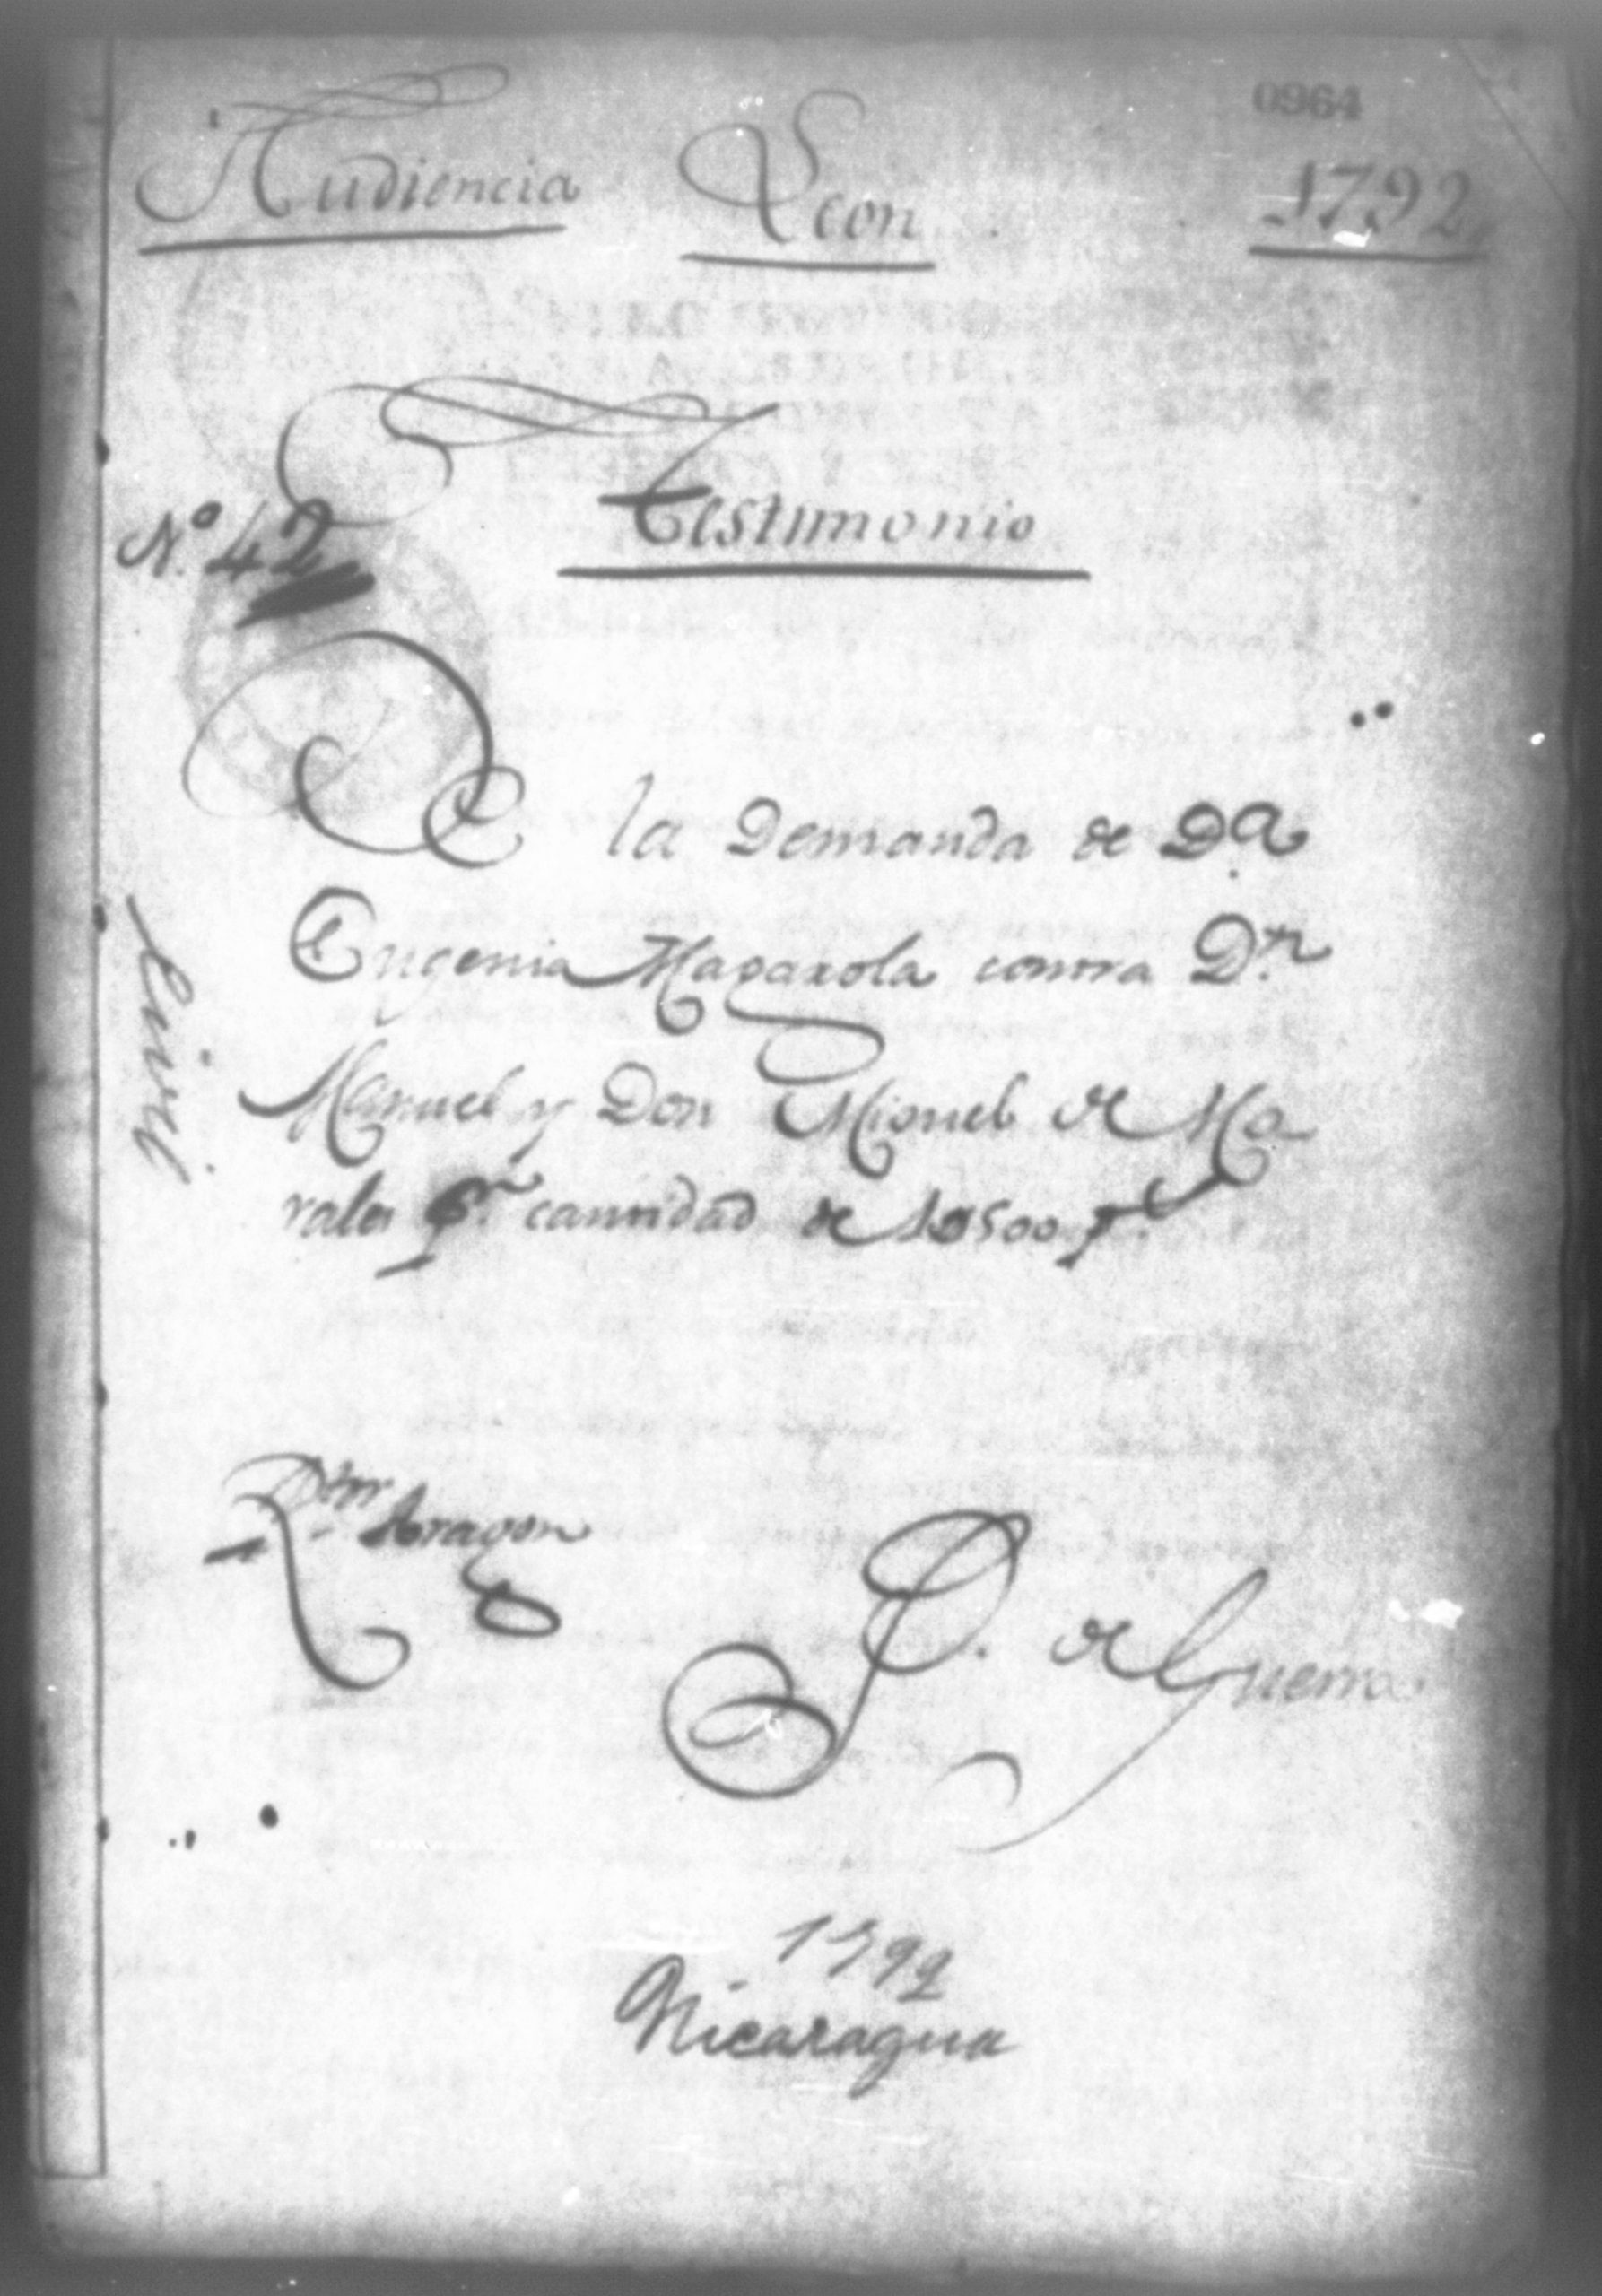 0964
Audiencia Leon 1792
Testimonio
Nº 42
De la Demanda de Dª
Eugenia contra Dn
Manuel y Don Miguel de Mo-
rales pr cantidad de ps
Civil
Aragon
P. de Guerra
1792
Nicaragua